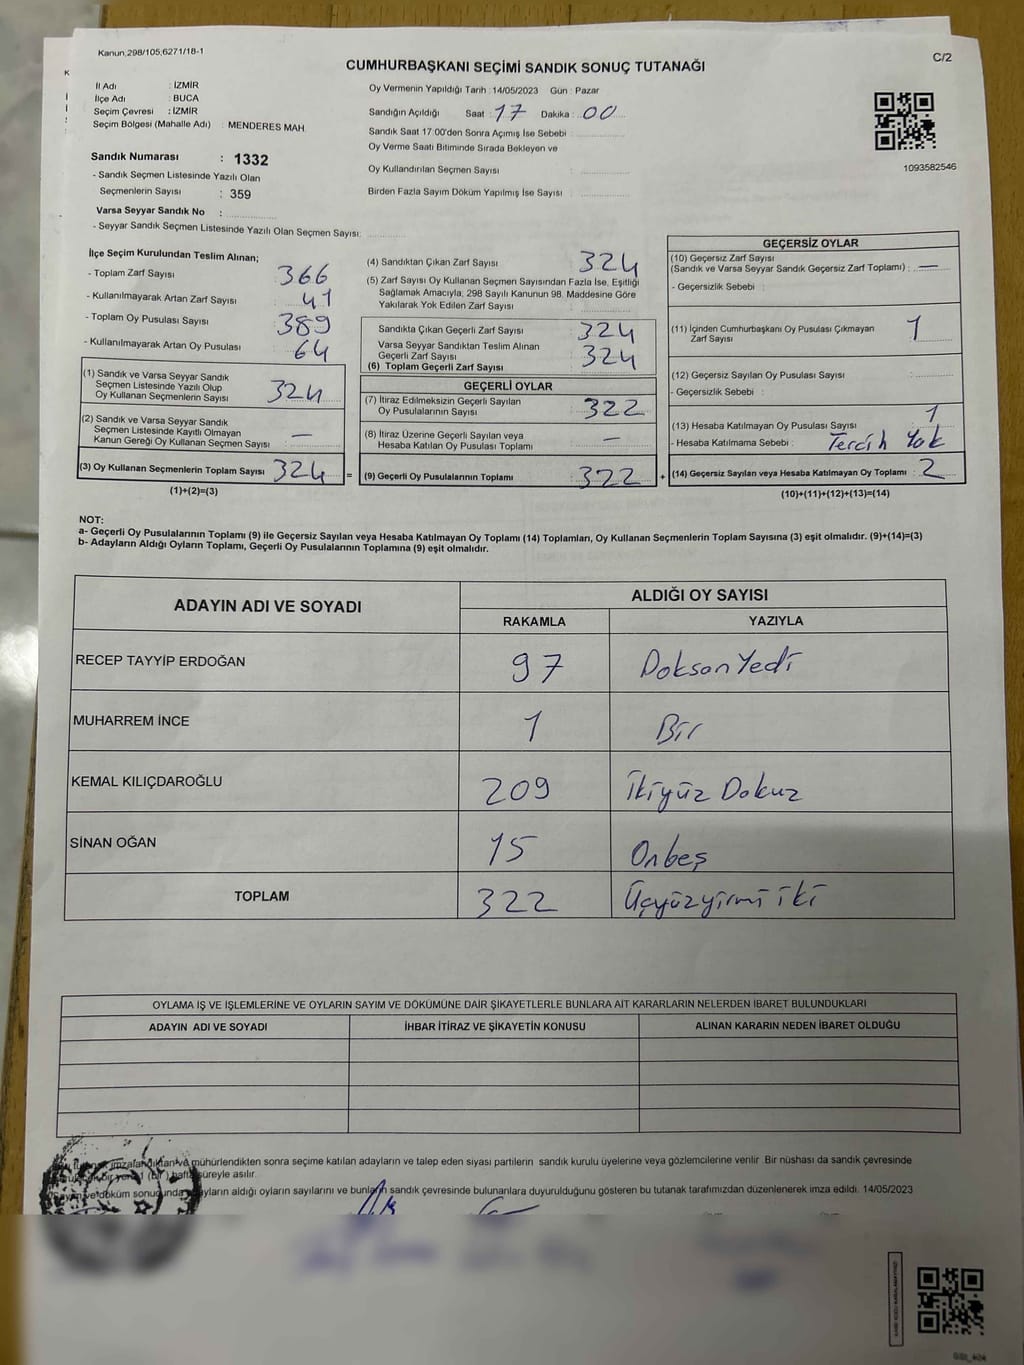 Kanun,298/105,6271/18-1
C/2
CUMHURBAŞKANI SEÇİMİ SANDIK SONUÇ TUTANAĞI
İl Adı : İZMİR
İlçe Adı : BUCA
Seçim Çevresi : İZMİR
Seçim Bölgesi (Mahalle Adı) : MENDERES MAH.
Oy Vermenin Yapıldığı Tarih : 14/05/2023 Gün : Pazar
Sandığın Açıldığı Saat : 17 Dakika : 00
Sandık Saat 17:00'den Sonra Açımış İse Sebebi :
Oy Verme Saati Bitiminde Sırada Bekleyen ve
Oy Kullandırılan Seçmen Sayısı :
Birden Fazla Sayım Döküm Yapılmış İse Sayısı :
1093582546
Sandık Numarası : 1332
- Sandık Seçmen Listesinde Yazılı Olan
Seçmenlerin Sayısı : 359
Varsa Seyyar Sandık No :
- Seyyar Sandık Seçmen Listesinde Yazılı Olan Seçmen Sayısı:
İlçe Seçim Kurulundan Teslim Alınan;
- Toplam Zarf Sayısı 366
- Kullanılmayarak Artan Zarf Sayısı 41
- Toplam Oy Pusulası Sayısı 389
- Kullanılmayarak Artan Oy Pusulası 64
(1) Sandık ve Varsa Seyyar Sandık
Seçmen Listesinde Yazılı Olup
Oy Kullanan Seçmenlerin Sayısı 324
(2) Sandık ve Varsa Seyyar Sandık
Seçmen Listesinde Kayıtlı Olmayan
Kanun Gereği Oy Kullanan Seçmen Sayısı : —
(3) Oy Kullanan Seçmenlerin Toplam Sayısı 324 =
(1)+(2)=(3)
(4) Sandıktan Çıkan Zarf Sayısı 324
(5) Zarf Sayısı Oy Kullanan Seçmen Sayısından Fazla İse, Eşitliği
Sağlamak Amacıyla, 298 Sayılı Kanunun 98. Maddesine Göre
Yakılarak Yok Edilen Zarf Sayısı :
Sandıkta Çıkan Geçerli Zarf Sayısı 324
Varsa Seyyar Sandıktan Teslim Alınan
Geçerli Zarf Sayısı 324
(6) Toplam Geçerli Zarf Sayısı
GEÇERLİ OYLAR
(7) İtiraz Edilmeksizin Geçerli Sayılan
Oy Pusulalarının Sayısı 322
(8) İtiraz Üzerine Geçerli Sayılan veya
Hesaba Katılan Oy Pusulası Toplamı —
(9) Geçerli Oy Pusulalarının Toplamı 322 +
GEÇERSİZ OYLAR
(10) Geçersiz Zarf Sayısı
(Sandık ve Varsa Seyyar Sandık Geçersiz Zarf Toplamı) : —
- Geçersizlik Sebebi :
(11) İçinden Cumhurbaşkanı Oy Pusulası Çıkmayan
Zarf Sayısı : 1
(12) Geçersiz Sayılan Oy Pusulası Sayısı :
- Geçersizlik Sebebi :
(13) Hesaba Katılmayan Oy Pusulası Sayısı : 1
- Hesaba Katılmama Sebebi : Tercih Yok
(14) Geçersiz Sayılan veya Hesaba Katılmayan Oy Toplamı : 2
(10)+(11)+(12)+(13)=(14)
NOT:
a- Geçerli Oy Pusulalarının Toplamı (9) ile Geçersiz Sayılan veya Hesaba Katılmayan Oy Toplamı (14) Toplamları, Oy Kullanan Seçmenlerin Toplam Sayısına (3) eşit olmalıdır. (9)+(14)=(3)
b- Adayların Aldığı Oyların Toplamı, Geçerli Oy Pusulalarının Toplamına (9) eşit olmalıdır.
ADAYIN ADI VE SOYADI
ALDIĞI OY SAYISI
RAKAMLA YAZIYLA
RECEP TAYYİP ERDOĞAN 97 Doksan Yedi
MUHARREM İNCE 1 Bir
KEMAL KILIÇDAROĞLU 209 İkiyüz Dokuz
SİNAN OĞAN 15 Onbeş
TOPLAM 322 Üçyüzyirmi iki
OYLAMA İŞ VE İŞLEMLERİNE VE OYLARIN SAYIM VE DÖKÜMÜNE DAİR ŞİKAYETLERLE BUNLARA AİT KARARLARIN NELERDEN İBARET BULUNDUKLARI
ADAYIN ADI VE SOYADI İHBAR İTİRAZ VE ŞİKAYETİN KONUSU ALINAN KARARIN NEDEN İBARET OLDUĞU
imzalandıktan ve mühürlendikten sonra seçime katılan adayların ve talep eden siyasi partilerin sandık kurulu üyelerine veya gözlemcilerine verilir. Bir nüshası da sandık çevresinde
(bir) hafta süreyle asılır.
Sayım ve döküm sonucunda adayların aldığı oyların sayılarını ve bunların sandık çevresinde bulunanlara duyurulduğunu gösteren bu tutanak tarafımızdan düzenlenerek imza edildi. 14/05/2023